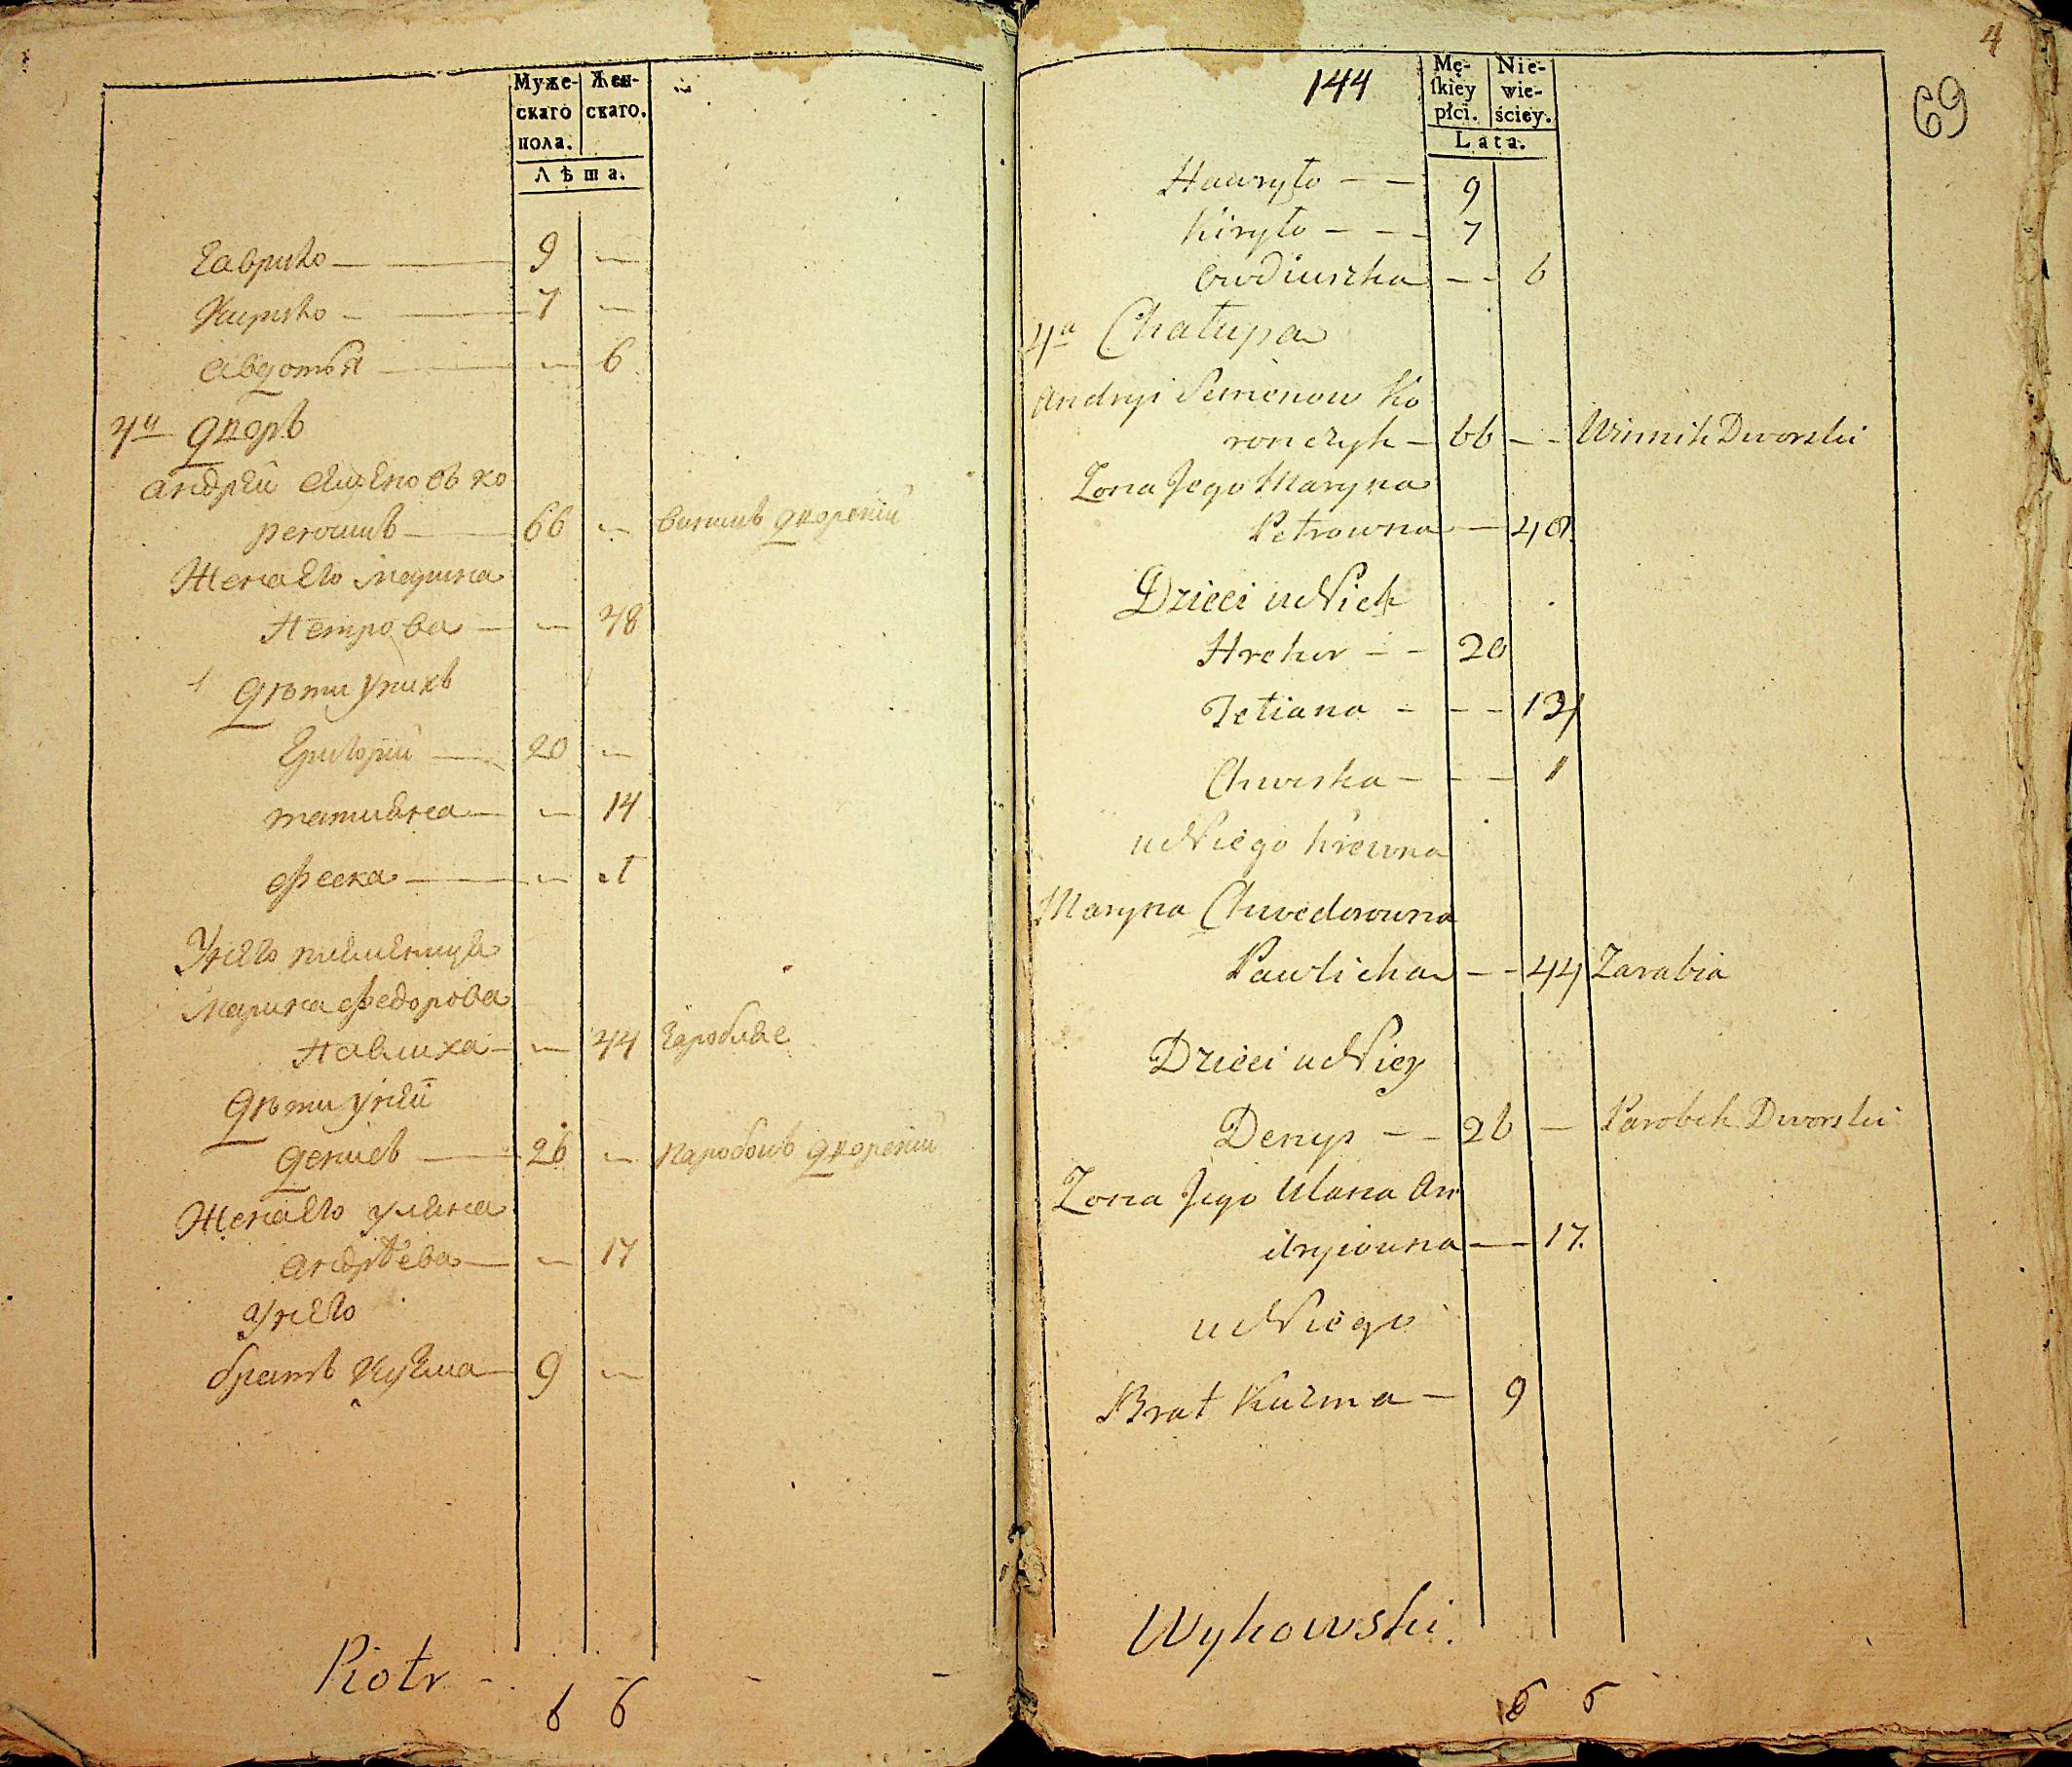 Муже-
скаго
пола.
Жен-
скаго.
Лѣта.
Гаврило — 9 —
Кирило — 7 —
Авдотья — — 6
4й дворъ
Андрей Семеновъ Ко
рончикъ — 66 — винникъ дворскій
Жена Его Марина
Петрова — — 48
Дѣти у нихъ
Григорій — 20 —
татияна — — 14
феска — — 1
У него племѣнница
Марина федорова
Павлиха — — 44 Заробляе
Дѣти у ней
Денисъ — 26 — паробокъ дворскій
Жена Его Уляна
Андрѣева — — 17
У него
братъ Кузма — 9 —
Piotr - - - -
6 6
4
69
144
Mę-
ſkiey
płci.
Nie-
wie-
ściey.
Lata.
Hawryło — — 9
Kiryło — — 7
Owdiuszka — — 6
4a Chałupa
Andryi Semenow Ko
ronczyk — 66 — — Winnik Dworski
Zona Jego Maryna
Petrowna — 48
Dzieci u Nich
Hrehor — — 20
Tetiana — — — 14
Chweska — — — 1
u Niego Krewna
Maryna Chwedorowna
Pawlicha — — 44 Zarabia
Dzieci u Niey
Denys — — 26 — Parobek Dworski
Zona Jego Ulana An
dryiowna — — 17.
u Niego
Brat Kuzma — 9
Wykowski.
6 6